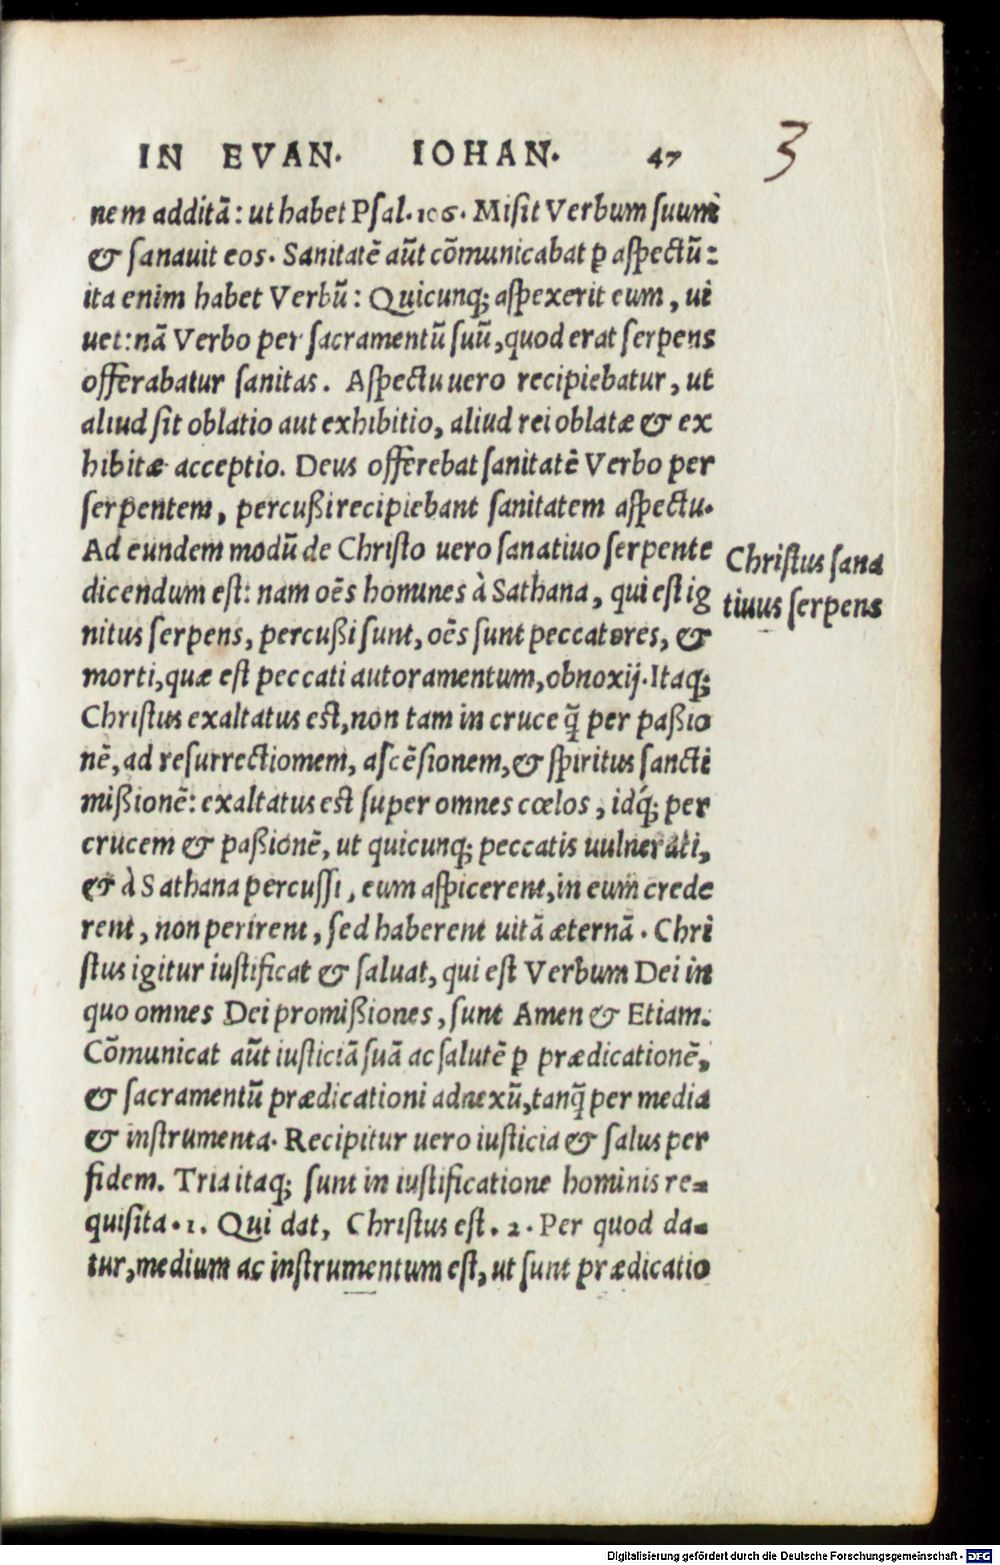 IN EVAN. IOHAN. 47
3
nem additã: ut habet Psal. 106. Misit Verbum suum
& sanavit eos. Sanitatẽ aũt cõmunicabat ꝑ aspectũ:
ita enim habet Verbũ: Quicunq; aspexerit eum, ui
uet: nã Verbo per sacramentũ suũ, quod erat serpens
offerabatur sanitas. Aspectu uero recipiebatur, ut
aliud sit oblatio aut exhibitio, aliud rei oblatæ & ex
hibitæ acceptio. Deus offerebat sanitatẽ Verbo per
serpentem, percußi recipiebant sanitatem aspectu.
Ad eundem modũ de Christo uero sanatiuo serpente
dicendum est: nam oẽs homines à Sathana, qui est ig
nitus serpens, percußi sunt, oẽs sunt peccatores, &
morti, quæ est peccati autoramentum, obnoxij. Itaq;
Christus exaltatus est, non tam in cruce q̃ per paßio
nẽ, ad resurrectiomem, ascẽsionem, & spiritus sancti
mißionẽ: exaltatus est super omnes cœlos, idq́; per
crucem & paßionẽ, ut quicunq; peccatis uulnerati,
& à Sathana percussi, eum aspicerent, in eum crede
rent, non perirent, sed haberent uitã æternã. Chri
stus igitur iustificat & saluat, qui est Verbum Dei in
quo omnes Dei promißiones, sunt Amen & Etiam.
Cõmunicat aũt iusticiã suã ac salutẽ ꝑ prædicationẽ,
& sacramentũ prædicationi adnexũ, tanq̃ per media
& instrumenta. Recipitur uero iusticia & salus per
fidem. Tria itaq; sunt in iustificatione hominis re=
quisita. 1. Qui dat, Christus est. 2. Per quod da=
tur, medium ac instrumentum est, ut sunt prædicatio
Christus sana
tiuus serpens
Digitalisierung gefördert durch die Deutsche Forschungsgemeinschaft - DFG